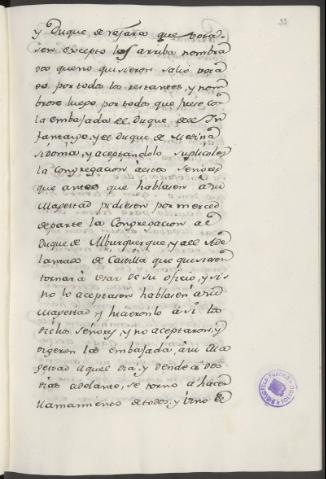 33
y Duque de vejara que vota
sen excepto los arriba nombra
dos que no quisieron salio vota
do por todos los restantes, y nom
brose luego por todos que fuese co
la embajada el Duque del In
fantazgo, y el Duque de Medina
Sidonia, y aceptandolo suplicoles
la Congregacion à estos Señores
que antes que hablasen à su
Magestad pidiesen por merced
de parte la Congregacion al
Duque de Alburquerque, y al Ade
lantado de Castilla que quisiesen
tornar à usar de su oficio, y si
no lo aceptasen hablasen à su
Magestad y hicieronlo asi los
dichos Señores, y no aceptaron, y
digeron la embajada, à su Ma
gestad aquel dia, y dende à dos
dias adelante, se torno à hacer
llamamiento de todos, y vino el